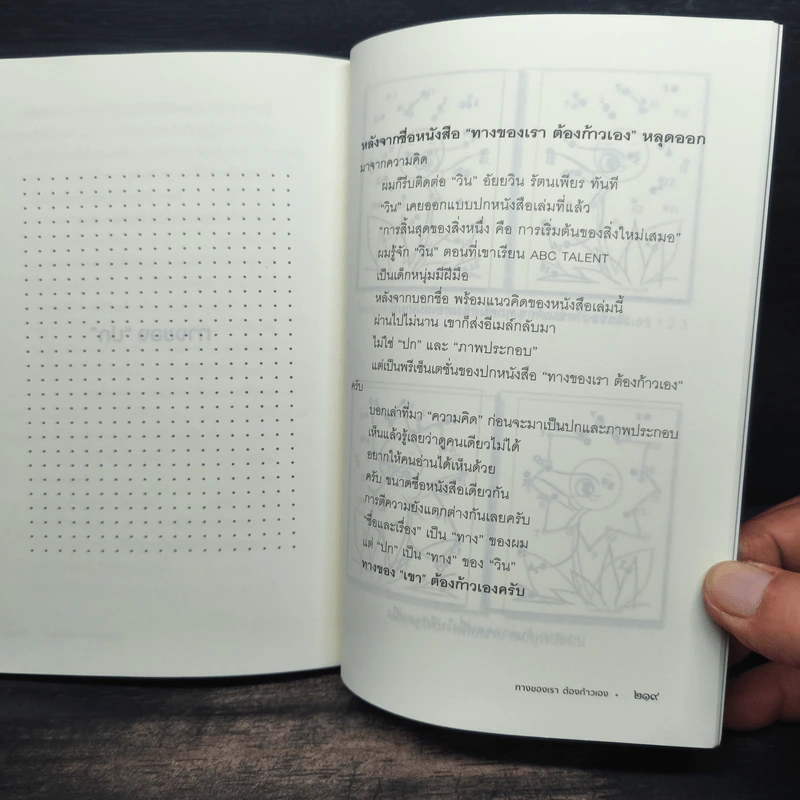 หลังจากชื่อหนังสือ “ทางของเรา ต้องก้าวเอง” หลุดออก
มาจากความคิด
ผมก็รีบติดต่อ “วิน” อัยยวิน รัตนเพียร ทันที
“วิน” เคยออกแบบปกหนังสือเล่มที่แล้ว
“การสิ้นสุดของสิ่งหนึ่ง คือ การเริ่มต้นของสิ่งใหม่เสมอ”
ผมรู้จัก “วิน” ตอนที่เขาเรียน ABC TALENT
เป็นเด็กหนุ่มมีฝีมือ
หลังจากบอกชื่อ พร้อมแนวคิดของหนังสือเล่มนี้
ผ่านไปไม่นาน เขาก็ส่งอีเมล์กลับมา
ไม่ใช่ “ปก” และ “ภาพประกอบ”
แต่เป็นพรีเซ็นเตชั่นของปกหนังสือ “ทางของเรา ต้องก้าวเอง”
ครับ
บอกเล่าที่มา “ความคิด” ก่อนจะมาเป็นปกและภาพประกอบ
เห็นแล้วรู้เลยว่าดูคนเดียวไม่ได้
อยากให้คนอ่านได้เห็นด้วย
ครับ ขนาดชื่อหนังสือเดียวกัน
การตีความยังแตกต่างกันเลยครับ
“ชื่อและเรื่อง” เป็น “ทาง” ของผม
แต่ “ปก” เป็น “ทาง” ของ “วิน”
ทางของ “เขา” ต้องก้าวเองครับ
ทางของเรา ต้องก้าวเอง • ๒๑๙